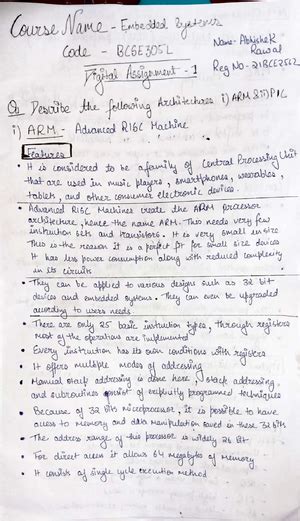 Course Name - Embedded Systems
Code - BCSE305L
Name- Abhishek Rawal
Digital Assignment - 1
Reg No- 21BCE2562
Q Describe the following Architectures i) ARM & ii) PIC
i) ARM - Advanced RISC Machine
Features
• It is considered to be a family of Central Processing Unit
that are used in music players, smartphones, wearables,
tablets, and other consumer electronic devices.
• Advanced RISC Machines create the ARM processor
architecture, hence the name ARM. This needs very few
instruction sets and transistors. It is very small in size
This is the reason it is a perfect fit for small size devices
It has less power consumption along with reduced complexity
in its circuits
• They can be applied to various designs such as 32 bit
devices and embedded systems. They can even be upgraded
according to users needs
• There are only 25 basic instruction types, through registers
most of the operations are implemented
• Every instruction has its own conditions with registers
• It offers multiple modes of addressing
• Manual stack addressing is done here, stack addressing
and subroutines consist of explicitly programmed techniques
• Because of 32 bit microprocessor, it is possible to have
access to memory and data manipulation saved in these 32 bits
• The address range of this processor is widely 26 bit
• For direct access it allows 64 megabytes of memory
• It consists of single cycle execution method